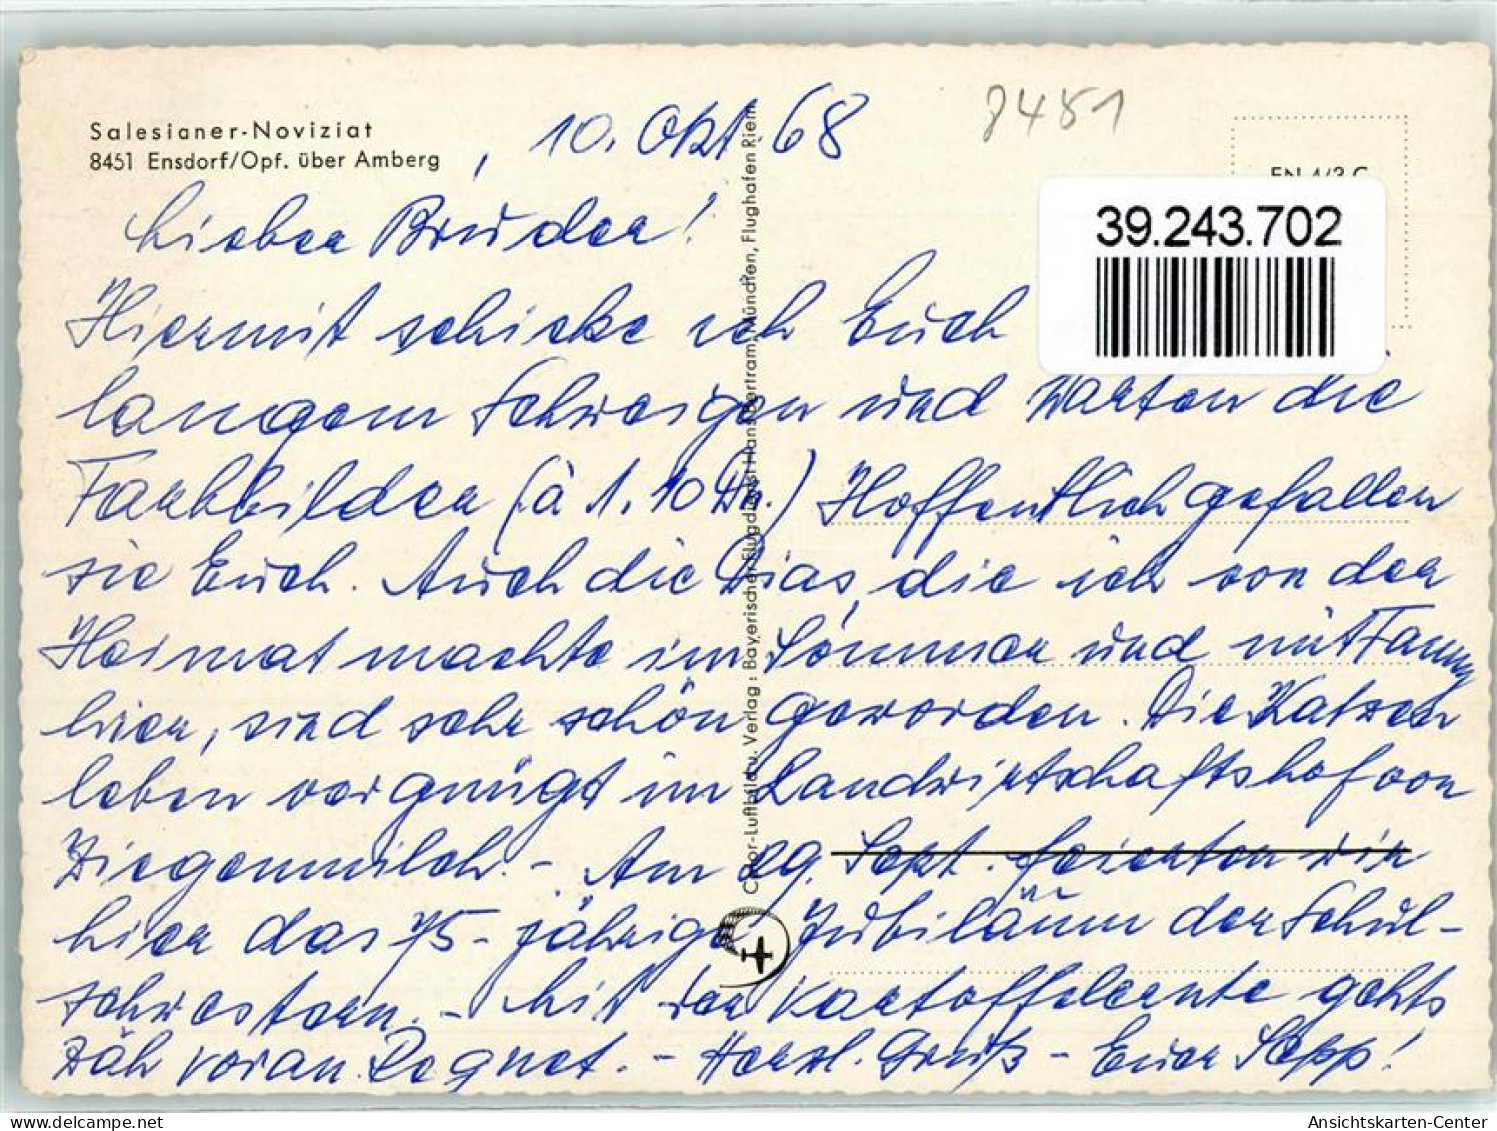 Salesianer-Noviziat
8451 Ensdorf/Opf. über Amberg
, 10. Okt. 68
8451
39.243.702
Lieber Bruder!
Hiermit schicke ich Euch
langem Schweigen und Warten die
Farbbilder (à 1.10 DM.) Hoffentlich gefallen
sie Euch. Auch die Dias, die ich von der
Heimat machte im Sommer und mit Fanny
hier, sind sehr schön geworden. Die Katzen
leben vergnügt im Landwirtschaftshof von
Ziegenmilch. - Am 29. Sept. feierten wir
hier das 75-jährige Jubiläum der Schul-
schwestern. - Mit der Kartoffelernte gehts
zäh voran. Regnet. - Herzl. Gruß - Euer Sepp!
Color-Luftbild u. Verlag: Bayerischer Flugdienst Hans Bertram, München, Flughafen Riem
Ansichtskarten-Center